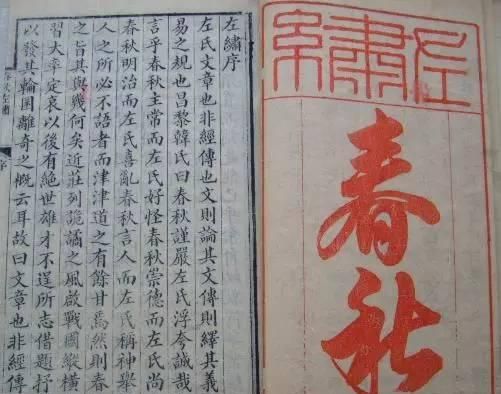 左繡
春秋
左繡序
左氏文章也非經傳也文則論其文傳則繹其義
易之規也昌黎韓氏曰春秋謹嚴左氏浮夸誠哉
言乎春秋主常而左氏好怪春秋崇德而左氏尚
春秋明治而左氏喜亂春秋言人而左氏稱神舉
人之所必不語者而津津道之有餘甘焉然則春
之旨其與幾何矣近莊列詭譎之風啟戰國縱橫
習大率定哀以後有絕世雄才不逞所志借題抒
以發其輪囷離奇之概云耳故曰文章也非經傳
春秋左繡
序